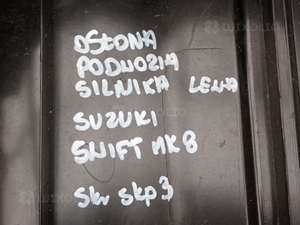 OSŁONA
PODWOZIA
SILNIKA LEWA
SUZUKI
SWIFT MK8
Skv skp3